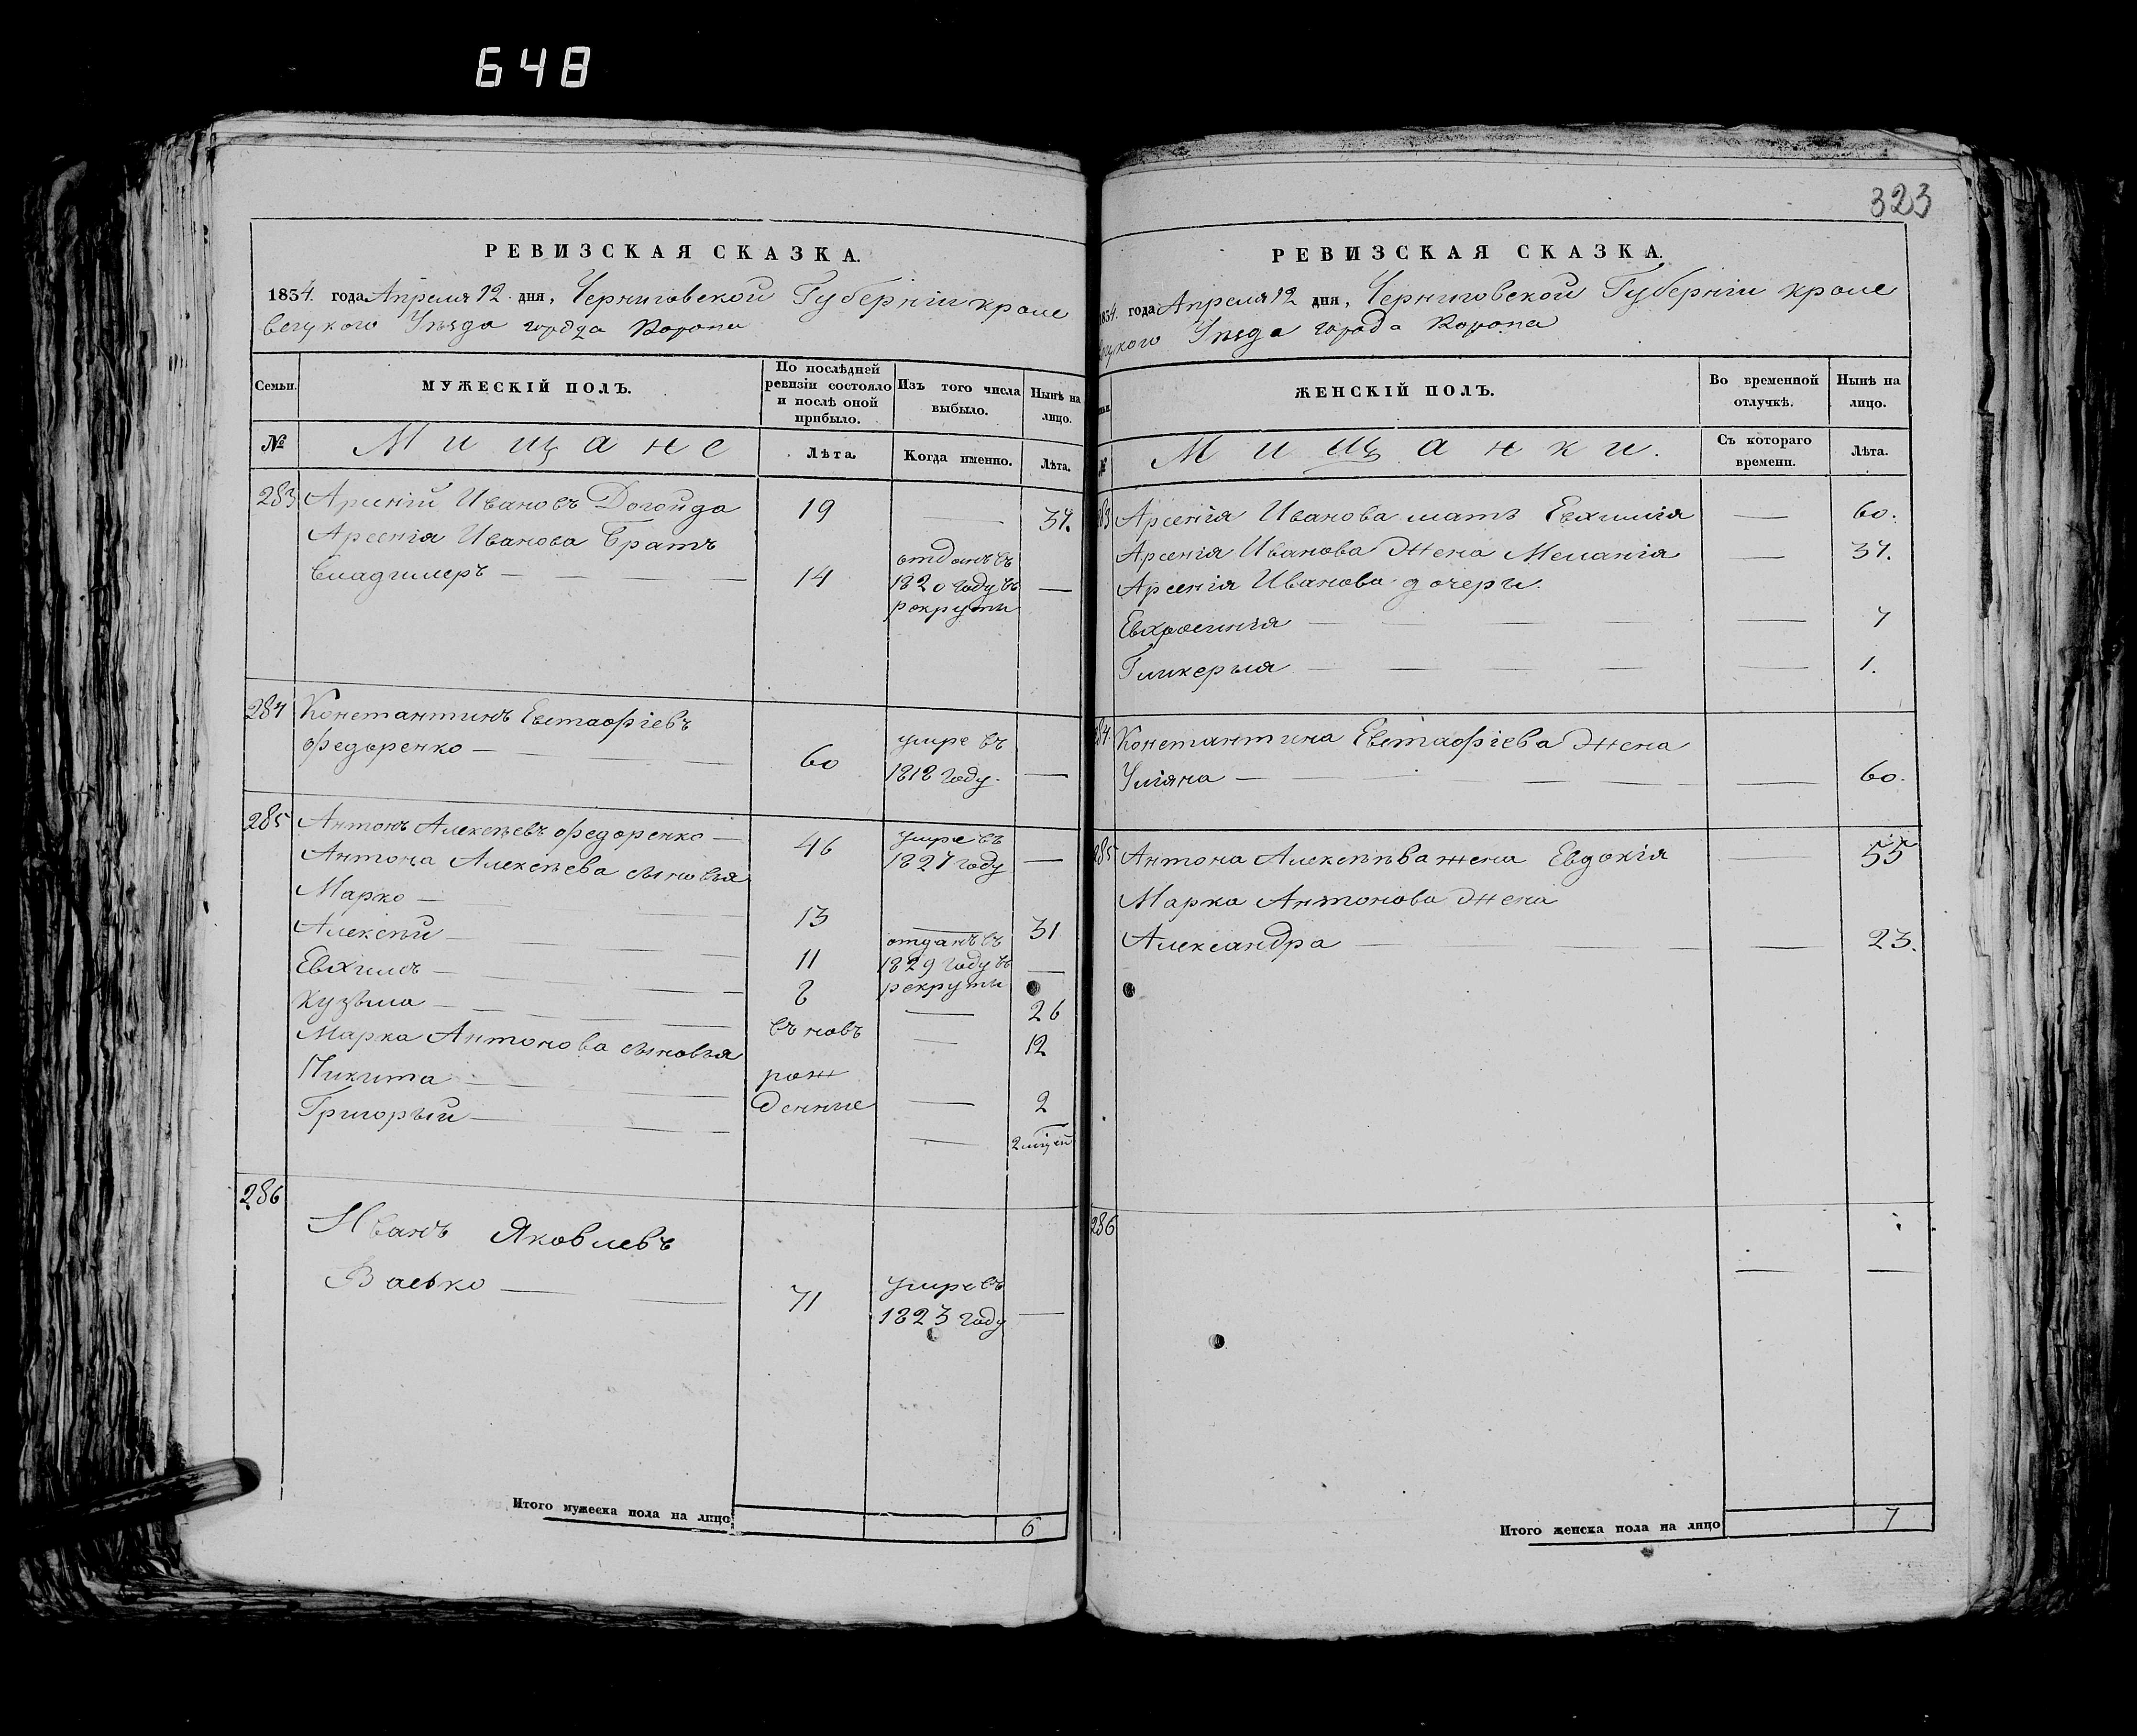 648
РЕВИЗСКАЯ СКАЗКА.
1834. года Апреля 12 дня, Черниговской Губерніи кроле
вецкого Уѣзда города Коропа
Семьи.
МУЖЕСКІЙ ПОЛЪ.
По послѣдней ревизіи состояло и послѣ оной прибыло.
Изъ того числа выбыло.
Нынѣ на лицо.
№
Мищане
Лѣта.
Когда именно.
Лѣта.
283 Арсеній Ивановъ Догойда 19 — 34.
Арсенія Иванова Братъ
Владимеръ — 14 отданъ въ 1820 году въ рекруты —
284 Константинъ Евстафіевъ
Федоренко — 60 умре въ 1818 году. —
285 Антонъ Алексѣевъ Федоренко — 46 умре въ 1827 году —
Антона Алексѣева сыновья
Марко — 13 — 31
Алексѣй — 11 отданъ въ 1829 году въ рекруты —
Евхимъ — 8 — 26
Кузьма — въ новъ — 12
Марка Антонова сыновья
Никита — рож — 2
Григорый — денные — 2 мцей
286
Иванъ Яковлевъ
Васько — 71 умре въ 1823 году —
Итого мужеска пола на лицо 6
323
РЕВИЗСКАЯ СКАЗКА.
1834. года Апреля 12 дня, Черниговской Губерніи кроле
вецкого Уѣзда города Коропа
ЖЕНСКІЙ ПОЛЪ.
Во временной отлучкѣ.
Нынѣ на лицо.
№
Мищанки.
Съ котораго времени.
Лѣта.
283 Арсенія Иванова мать Евхимія — 60.
Арсенія Иванова Жена Меланія — 34.
Арсенія Иванова дочери.
Евхросинія — — 7
Гликерыя — — 1.
284 Константина Евстафіева Жена
Уліяна — — 60.
285 Антона Алексѣева жена Евдокія — 55
Марка Антонова Жена
Александра — — 23.
286 — —
Итого женска пола на лицо 7